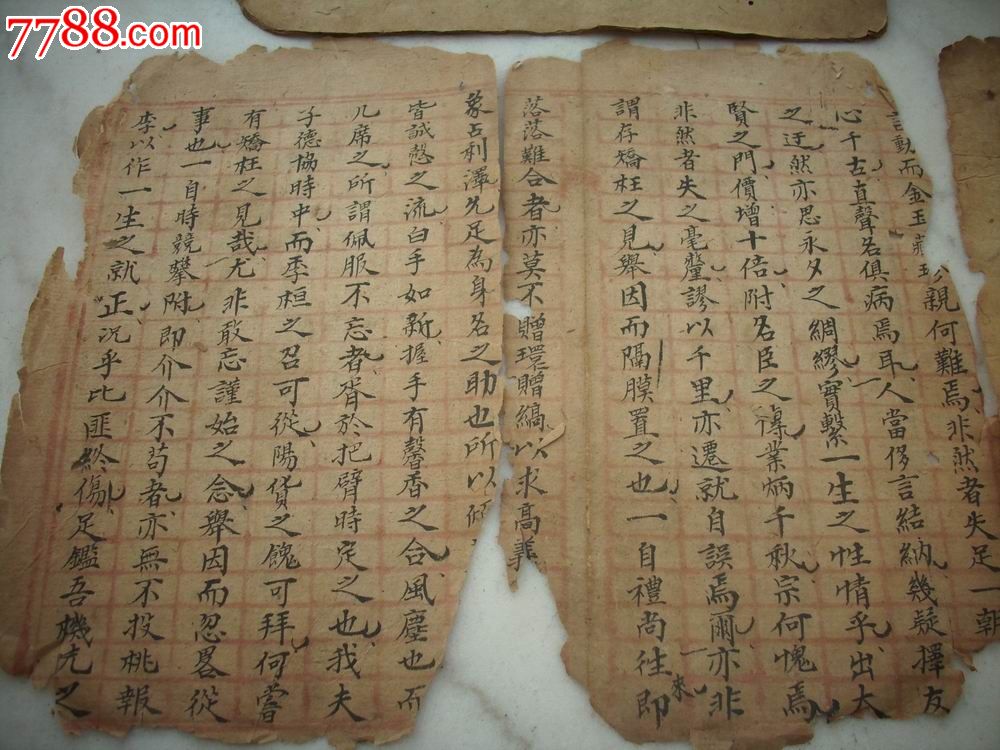 7788.com
言動而金玉
親何難焉非然者失足一朝
心千古直聲名俱病焉耳人當侈言結納幾疑擇友
之迂然亦思永夕之綢繆實繫一生之性情乎出大
賢之門價增十倍附名臣之德業炳千秋宗何愧焉
非然者失之毫釐謬以千里亦遷就自誤焉爾亦非
謂存矯枉之見舉因而隔膜置之也一自禮尚往來即
落落難合者亦莫不贈環贈縞以求高義
象占利澤先足為身名之助也所以
皆誠慤之流白手如新握手有馨香之合風塵也而
几席之所謂佩服不忘者胥於把臂時定之也我夫
子德協時中而季桓之召可從陽貨之餽可拜何嘗
有矯枉之見哉尤非敢忘謹始之念舉因而忽畧從
事也一自時競攀附即介介不苟者亦無不投桃報
李以作一生之就正況乎比匪終傷足鑑吾機尤之